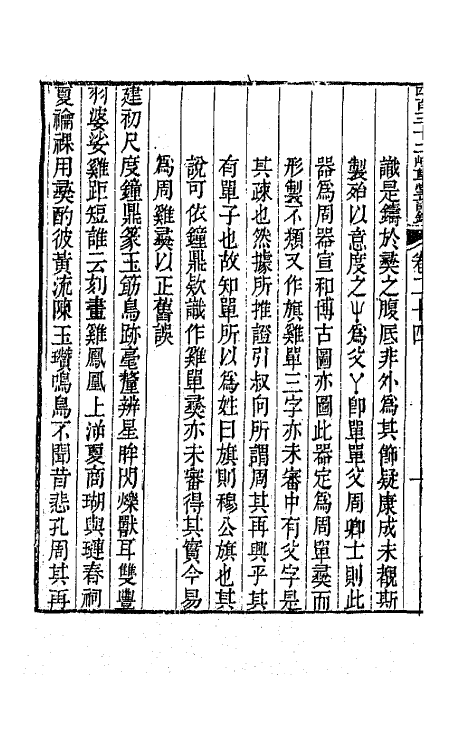 識是鑄於彝之腹底非外爲其飾疑康成未覩斯
製殆以意度之屮爲父丫卽單單父周卿士則此
器爲周器宣和博古圖亦圖此器定爲周單彝而
形製不類又作旗雞單三字亦未審中有父字是
其疎也然據所推證引叔向所謂周其再興乎其
有單子也故知單所以爲姓曰旗則穆公旗也其
說可依鐘鼎欵識作雞單彝亦未審得其實今易
爲周雞彝以正舊誤
建初尺度鐘鼎篆玉筯鳥跡毫釐辨星眸閃爍獸耳雙豐
羽婆娑雞距短誰云刻畫雞鳳凰上泝夏商瑚與璉春祠
夏禴祼用彝酌彼黃流陳玉瓚鳴鳥不聞昔悲孔周其再
卷二十四